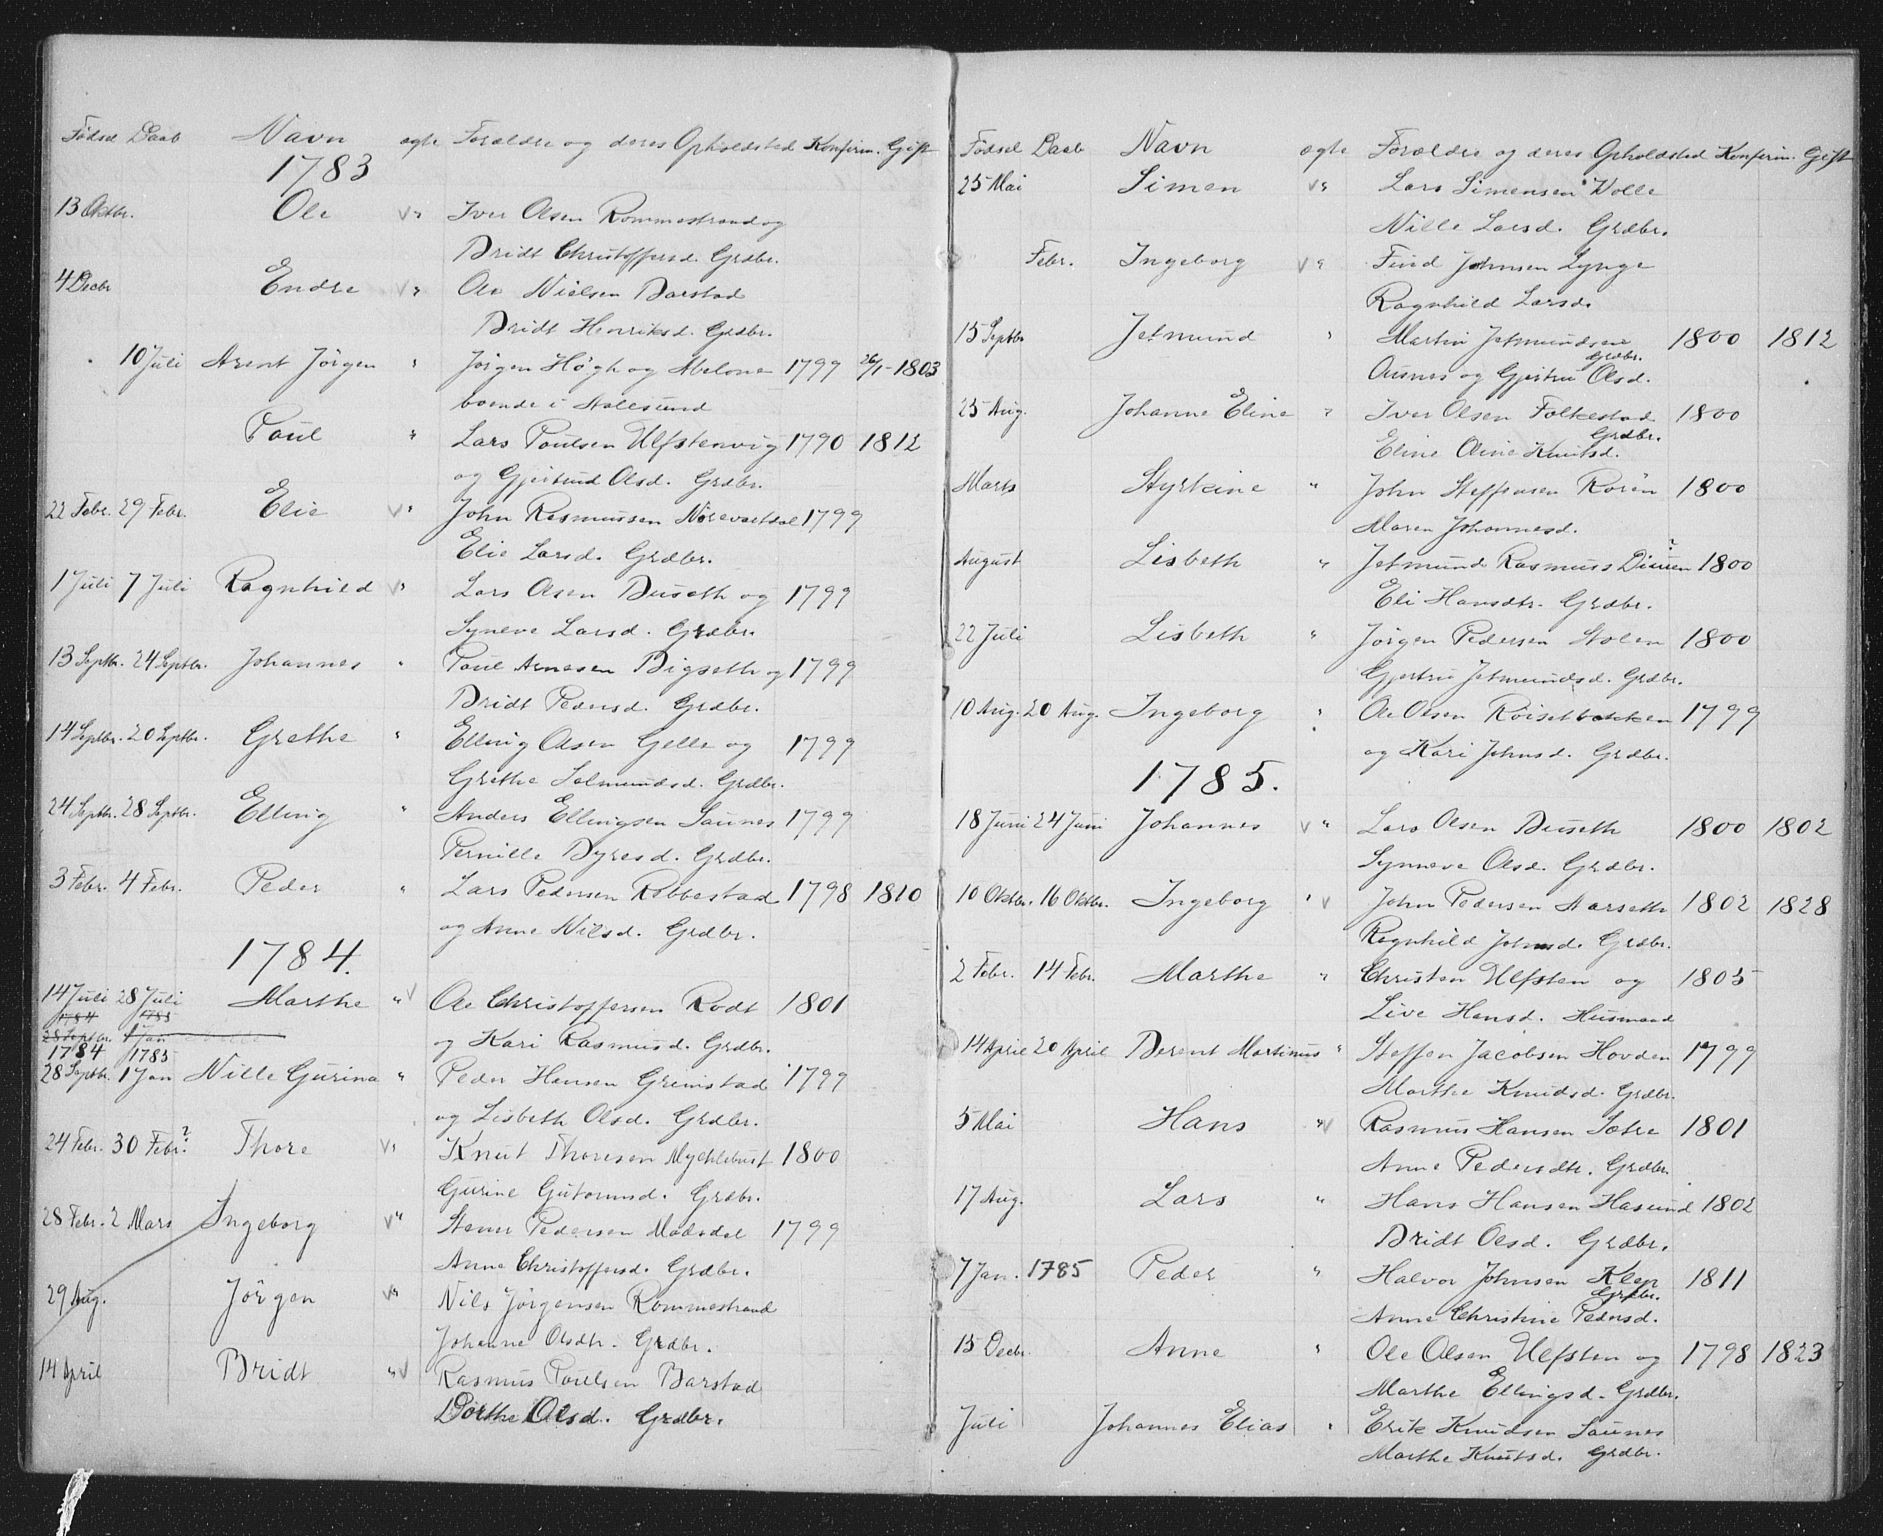 Födsel Daab Navn ægte Forældre og deres Opholdsted Konfirm. Gift
1783
13 Oktbr. Ole v " Iver Olsen Rommestrand og
Bridt Christoffersd. Grdbr.
4 Decbr Endre v " Ole Nielsen Barstad
Bridt Henriksd. Grdbr.
10 Juli Arent Jörgen " Jörgen Högh og Abelone 1799 26/1-1803
boende i Aalesund
Paul " Lars Poulsen Ulfstenvig 1790 1812
og Gjertrud Olsd. Grdbr.
22 Febr. 29 Febr. Elie v " John Rasmussen Nörevartdal 1799
Elie Larsd. Grdbr.
1 Juli 7 Juli Ragnhild v " Lars Olsen Buseth og 1799
Syneve Larsd. Grdbr.
13 Septbr. 24 Septbr. Johannes " Paul Arnesen Bigseth og 1799
Bridt Pedersd. Grdbr.
14 Septbr. 20 Septbr. Grethe " Elling Olsen Gelle og 1799
Grethe Salmundsd. Grdbr.
24 Septbr. 28 Septbr. Elling " Anders Ellingsen Saunes 1799
Pernille Dyresd. Grdbr.
3 Febr. 4 Febr. Peder " Lars Pedersen Robbestad 1798 1810
og Anne Nilsd. Grdbr.
1784.
14 Juli 28 Juli Marthe " v Ole Christoffersen Rodt 1801
1784 1785
28 Septbr. 1 Jan
og Kari Rasmusd. Grdbr.
1784 1785
28 Septbr. 1 Jan Nille Gurina " Peder Hansen Grimstad 1799
og Lisbeth Olsd. Grdbr.
24 Febr. 30 Febr.? Thore v " Knut Thoresen Myklebust 1800
Gurine Gutormsd. Grdbr.
28 Febr. 2 Mars Ingeborg v " Stener Pedersen Madsdal 1799
Anne Christoffersd. Grdbr.
29 Aug. Jörgen v " Nils Jörgensen Rommestrand
Johanne Olsdtr. Grdbr.
14 April Bridt " v Rasmus Poulsen Barstad
Dorthe Olsd. Grdbr.
Födsel Daab Navn ægte Forældre og deres Opholdsted Konfirm. Gift
25 Mai Simen v " Lars Simensen Wolle
Nille Larsd. Grdbr.
Febr. Ingeborg v " Find Johnsen Lynge
Ragnhild Larsd.
15 Septbr Jetmund " Martin Jetmundsen 1800 1812
Grdbr.
Ausnes og Gjertru Olsd.
25 Aug. Johanne Eline " Iver Olsen Folkestad 1800
Grdbr.
Eline Oline Knutsd.
Marts Styrkine " John Steffensen Rorön 1800
Maren Johannesd.
August Lisbeth " Jetmund Rasmuss Dimen? 1800
Eli Hansdtr. Grdbr.
22 Juli Lisbeth " Jörgen Pedersen Stolen 1800
Gjertru Jetmundsd. Grdbr.
10 Aug. 20 Aug. Ingeborg " Ole Olsen Roisetbakken 1799
og Kari Johnsd. Grdbr.
1785.
18 Juni 24 Juni Johannes v " Lars Olsen Buseth 1800 1802
Synneve Olsd. Grdbr.
10 Oktbr. 16 Oktbr. Ingeborg " v John Pedersen Aarseth 1802 1828
Ragnhild Johnsd. Grdbr.
2 Febr. 14 Febr. Marthe " Christen Ulfsten og 1805
Live Hansd. Husmand
14 April 20 April Berent Martinus " Steffen Jacobsen Hovden 1799
Marthe Knudsd. Grdbr.
5 Mai Hans " v Rasmus Hansen Sætre 1801
Anne Pedersdtr. Grdbr.
17 Aug. Lars " Hans Hansen Hasund 1802
Bridt Olsd. Grdbr.
7 Jan. 1785 Peder " Halvor Johnsen Klep 1811
Grdbr.
Anne Christine Pedersd.
15 Decbr. Anne " Ole Olsen Ulfsten og 1798 1823
Marthe Ellingsd. Grdbr.
Juli Johannes Elias " Erik Knudsen Saunes
Marthe Knutsd. Grdbr.